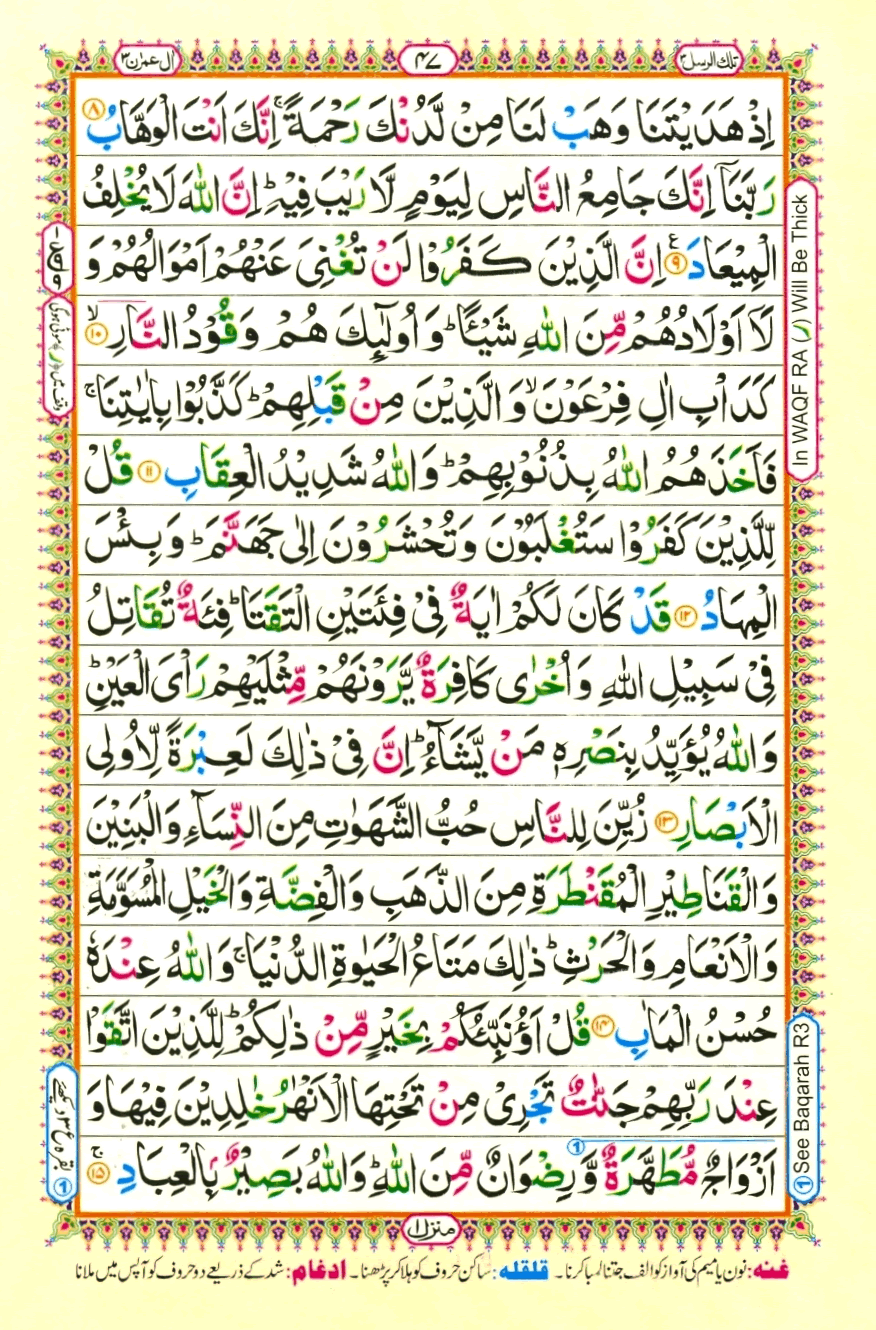 تلك الرسل ۳
۴۷
اٰل عمرٰن ۳
اِذْ هَدَيْتَنَا وَهَبْ لَنَا مِنْ لَّدُنْكَ رَحْمَةً ۚ اِنَّكَ اَنْتَ الْوَهَّابُ ۸
رَبَّنَاۤ اِنَّكَ جَامِعُ النَّاسِ لِيَوْمٍ لَّا رَيْبَ فِيْهِ ؕ اِنَّ اللّٰهَ لَا يُخْلِفُ
الْمِيْعَادَ ۹ ع اِنَّ الَّذِيْنَ كَفَرُوْا لَنْ تُغْنِيَ عَنْهُمْ اَمْوَالُهُمْ وَ
لَاۤ اَوْلَادُهُمْ مِّنَ اللّٰهِ شَيْـًٔا ؕ وَ اُولٰٓئِكَ هُمْ وَقُوْدُ النَّارِ ۱۰ ۙ
كَدَاْبِ اٰلِ فِرْعَوْنَ ۙ وَ الَّذِيْنَ مِنْ قَبْلِهِمْ ؕ كَذَّبُوْا بِاٰيٰتِنَا ۚ
فَاَخَذَهُمُ اللّٰهُ بِذُنُوْبِهِمْ ؕ وَ اللّٰهُ شَدِيْدُ الْعِقَابِ ۱۱ قُلْ
لِّلَّذِيْنَ كَفَرُوْا سَتُغْلَبُوْنَ وَ تُحْشَرُوْنَ اِلٰى جَهَنَّمَ ؕ وَ بِئْسَ
الْمِهَادُ ۱۲ قَدْ كَانَ لَكُمْ اٰيَةٌ فِيْ فِئَتَيْنِ الْتَقَتَا ؕ فِئَةٌ تُقَاتِلُ
فِيْ سَبِيْلِ اللّٰهِ وَ اُخْرٰى كَافِرَةٌ يَّرَوْنَهُمْ مِّثْلَيْهِمْ رَاْيَ الْعَيْنِ ؕ
وَ اللّٰهُ يُؤَيِّدُ بِنَصْرِهٖ مَنْ يَّشَآءُ ؕ اِنَّ فِيْ ذٰلِكَ لَعِبْرَةً لِّاُولِي
الْاَبْصَارِ ۱۳ زُيِّنَ لِلنَّاسِ حُبُّ الشَّهَوٰتِ مِنَ النِّسَآءِ وَ الْبَنِيْنَ
وَ الْقَنَاطِيْرِ الْمُقَنْطَرَةِ مِنَ الذَّهَبِ وَ الْفِضَّةِ وَ الْخَيْلِ الْمُسَوَّمَةِ
وَ الْاَنْعَامِ وَ الْحَرْثِ ؕ ذٰلِكَ مَتَاعُ الْحَيٰوةِ الدُّنْيَا ۚ وَ اللّٰهُ عِنْدَهٗ
حُسْنُ الْمَاٰبِ ۱۴ قُلْ اَؤُنَبِّئُكُمْ بِخَيْرٍ مِّنْ ذٰلِكُمْ ؕ لِلَّذِيْنَ اتَّقَوْا
عِنْدَ رَبِّهِمْ جَنّٰتٌ تَجْرِيْ مِنْ تَحْتِهَا الْاَنْهٰرُ خٰلِدِيْنَ فِيْهَا وَ
اَزْوَاجٌ مُّطَهَّرَةٌ وَّ رِضْوَانٌ مِّنَ اللّٰهِ ؕ وَ اللّٰهُ بَصِيْرٌۢ بِالْعِبَادِ ۱۵ ۚ
منزل ۱
In WAQF RA (ر) Will Be Thick
① See Baqarah R3
① بقرہ ع ۳ دیکھیے
غنه: نون یا میم کی آواز کو الف جتنا لمبا کرنا۔ قلقله: ساکن حروف کو ہلا کر پڑھنا۔ ادغام: شد کے ذریعے دو حروف کو آپس میں ملانا